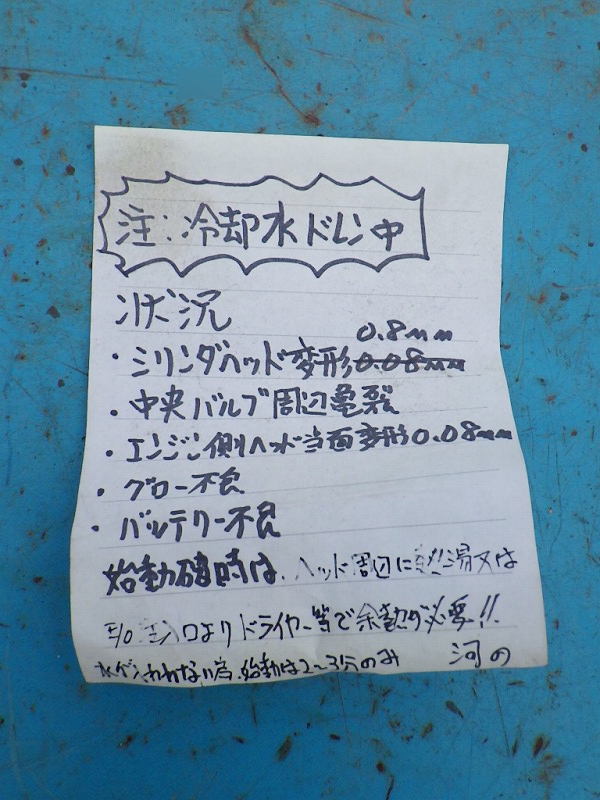 注:冷却水ドレン中
状況
0.8mm
・シリンダヘッド変形0.08mm
・中央バルブ周辺亀裂
・エンジン側ヘッド当面変形0.08mm
・グロー不良
・バッテリー不良
始動確時は、ヘッド周辺に熱湯又は
E/O注入口よりドライヤー等で余熱が必要!!
水が入れれない為、始動は2〜3分のみ 河の